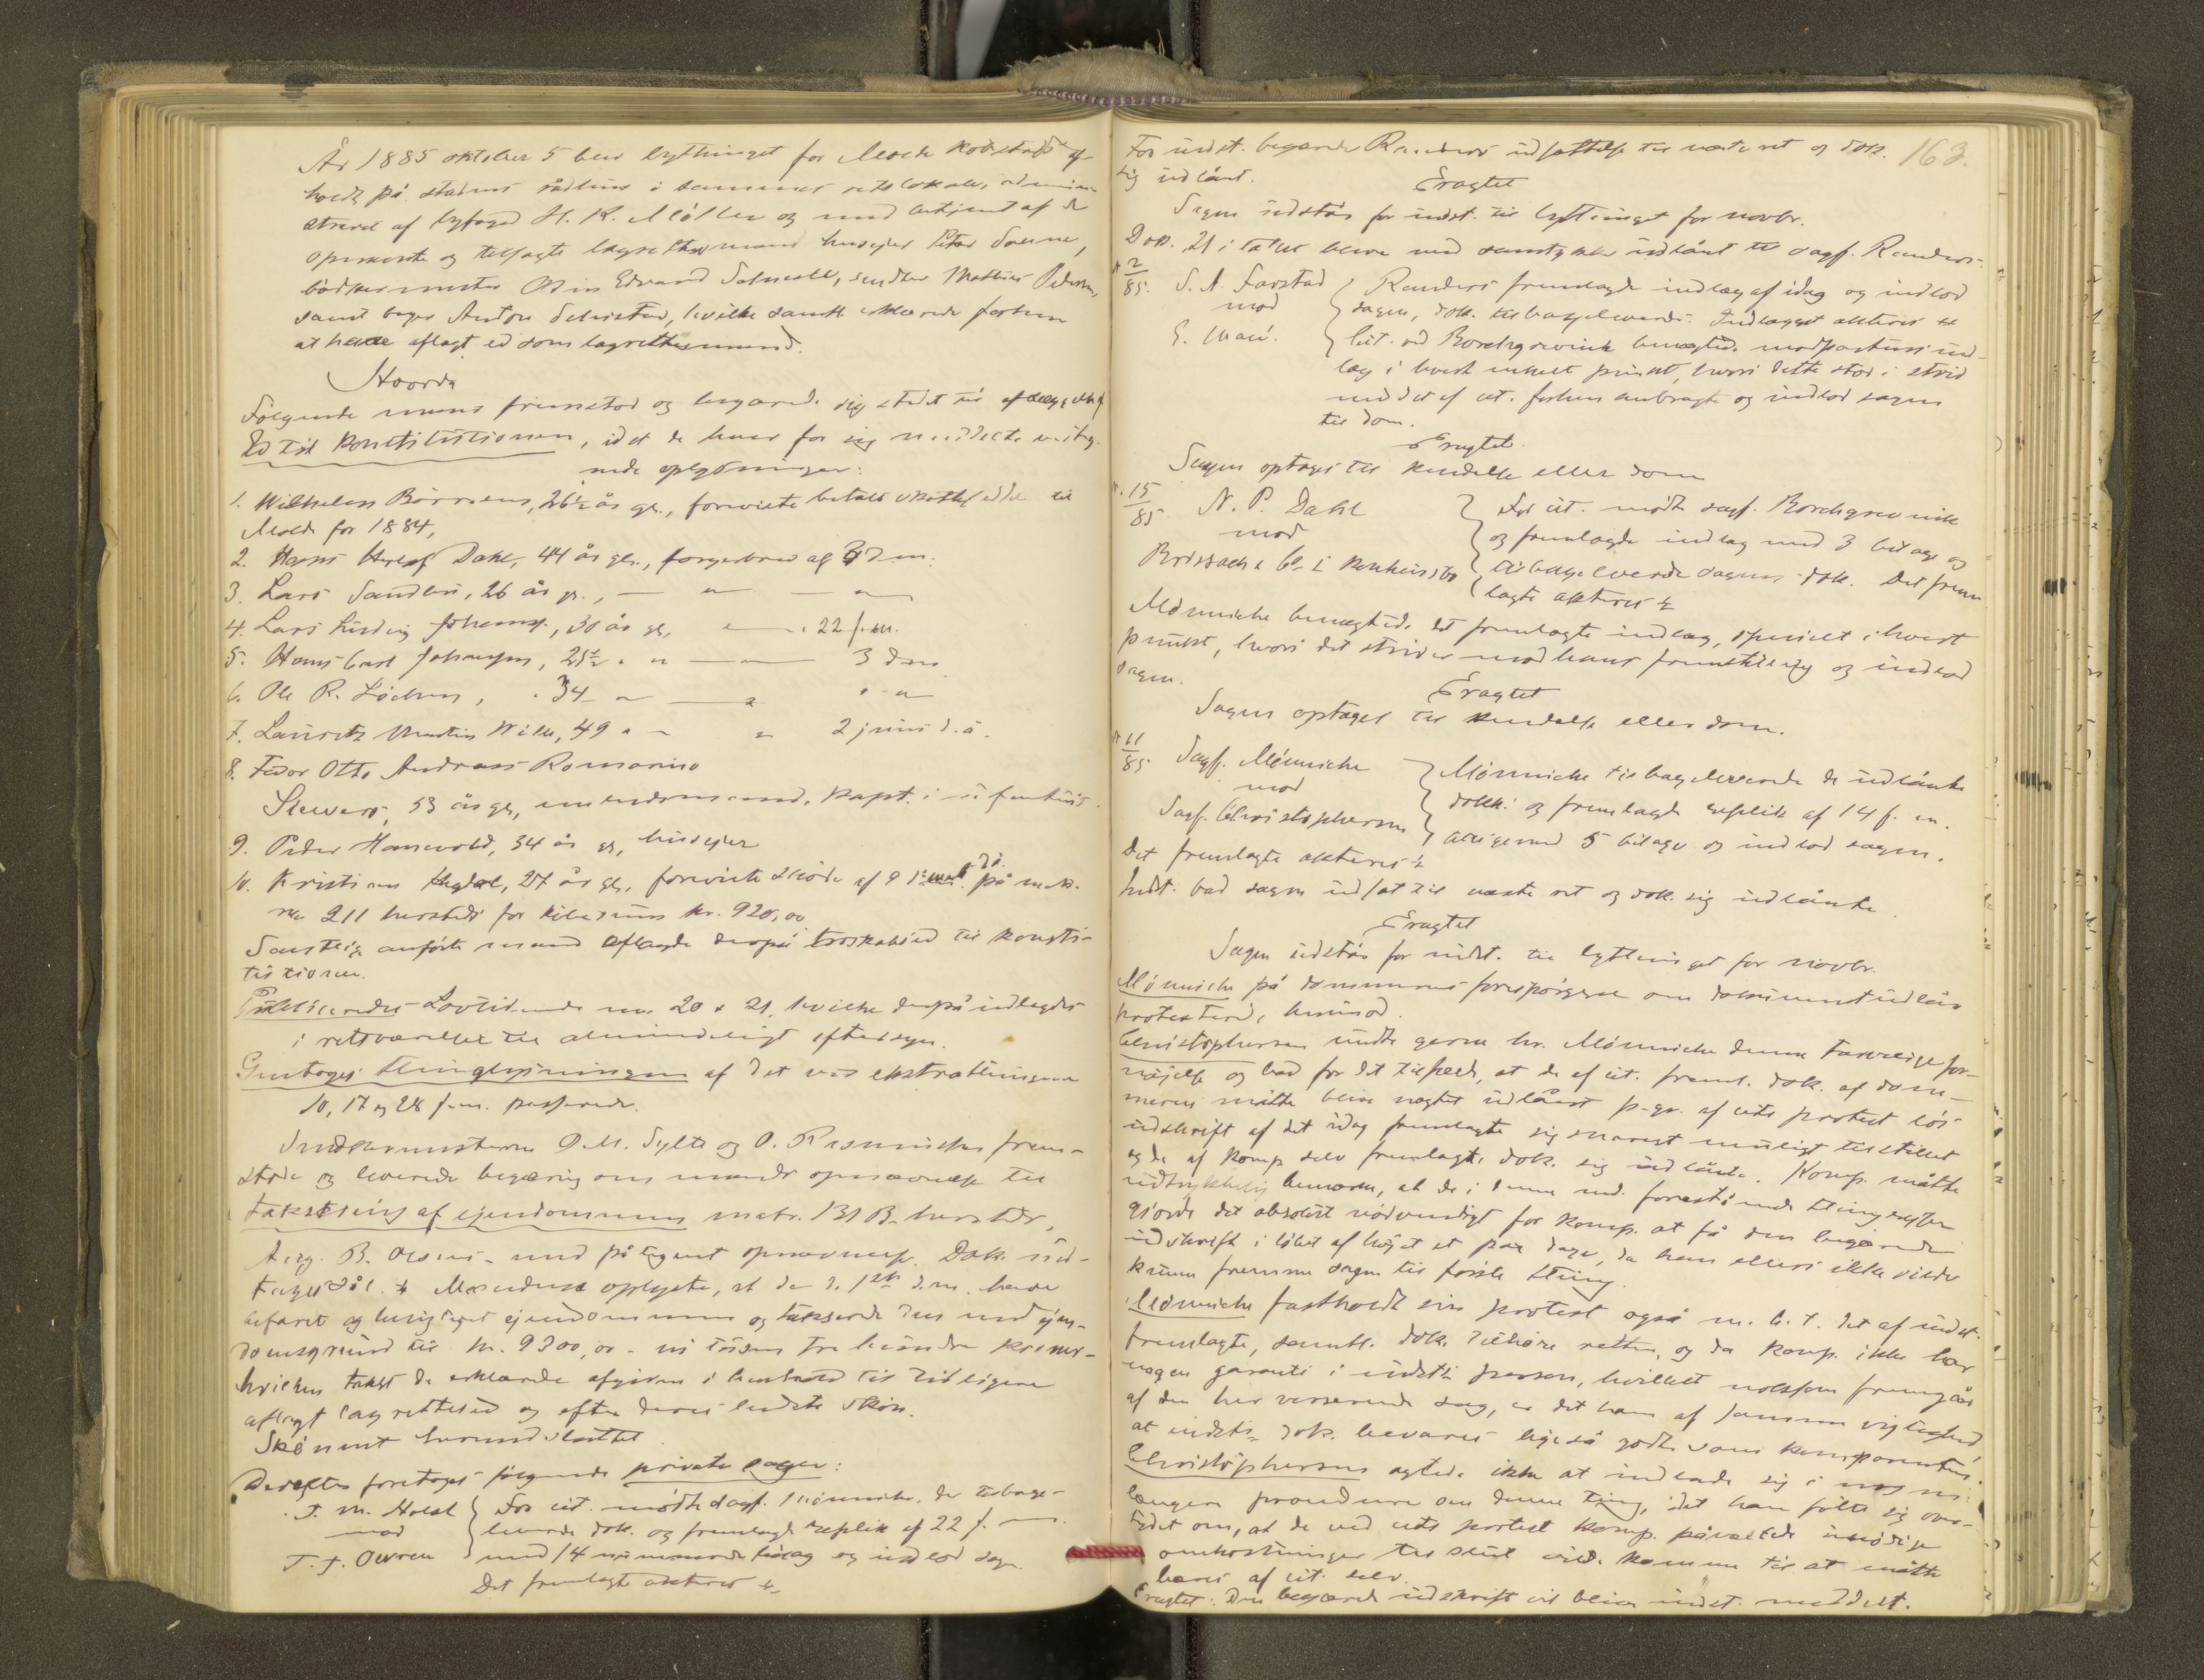 År 1885 oktober 5 blev bythinget for Molde kobstad af-
holdt på stadens rådhus i sammes retslokale, admini-
streret af byfoged H. K. Møller og med betjent af de
opnævnte og tilsagte lagrettesmænd husejer Peter
bødkermester Edvard Schistad, snedker Mathias Pedersen,
samt bager Anton Schistad, hvilke samtl. erklærede forhen
at have aflagt ed som lagrettesmænd.
Hvorda
Følgende mænd fremstod og begærede sig stedet til aflæggelse af
Ed til Konstitutionen, idet de hver for sig meddelte
nde oplysninger:
1. Wilhelm 26½ år gl., foreviste betalt skatteseddel til
Molde for 1884,
2. Hans Dahl, 44 år gl., borgerbrev af 3 d.m.
3. Lars Sandbu, 26 år gl., — " — — " —
4. Lars Ludvig Johans., 30 år gl, " — 22 f.m.
5. Hans Carl Johansen, 25½ " " — — 3 d.m.
6. Ole R. Løchen, " 34 " — " " - "
7. Lauritz Martin Wille, 49 " " " 2 juni d.å.
8. Fedor Otto Andreas Romarino
Siewers, 53 år gl, embedsmand, kapt. i infanteriet.
9. Peder Hansvold, 34 år gl, husejer
10. Kristian 27 år gl., foreviste skjøde af 9 på matr.
no 211 hersteds for kr. 920,00
Samtlige anførte mænd aflagde derpå troskabsed til konsti-
tutionen.
Publiceredes Lovtidende no 20 & 21, hvilke derpå indlagdes
i retsværelset til almindeligt eftersyn.
Gentoges thinglysningen af det ved ekstrathingene
10, 17 og 28 f.m. passerede.
Snedkermesterne O. M. Sylte og O. Rasmussen frem-
stod og leverede begæring om mænds opnævnelse til
taksering af ejendommen matr. 131 B. hersteds,
tilhørende B. Olsen, med påtegnet opnævnelse. Dok. ind-
tages sål. ⁒ Mændene oplyste, at de d. 1ste d.m. havde
befaret og besigtiget ejendommen og takserede den med ejen-
domsgrund til kr. 9300,00 - ni tusen tre hundre kroner -
hvilken takst de erklærede afgiven i henhold til tidligere
aflagt lagretteed og efter deres bedste skjøn.
Skønnet herved sluttet
Derefter foretoges følgende private sager:
T. M. Holst } For cit. mødte sagf. Mønniche, der tilbage-
mod } leverede dok. og fremlagde replik af 22 f. m.
T. T. Owren } med 14 nummererede bilag og indlod sagen.
Det fremlagte akteres ⁒
163.
For indst. begærede Randers udsættelse til næste ret og dok.
sig udlånt.
Eragtet
Sagen udstås for indst. til bythinget for novbr.
Dok. 21 i tallet bleve med samtykke udlånt til sagf. Randers.
№ 2/85. S. A. Farstad } Randers fremlagde indlæg af idag og indlod
mod } sagen, dok. tilbageleverede. Indlægget akteres ⁒
E. Maui. } Cit. ved Borchgrevink benægtede modpartens ind-
læg i hvert enkelt punkt, hvori dette stod i strid
med det af cit. forhen anbragte og indlod sagen
til dom.
Eragtet.
Sagen optages til kendelse eller dom
№ 15/85 N. P. Dahl } For cit. mødte sagf. Borchgrevink
mod } og fremlagde indlæg med 3 bilage og
& Co. } tilbageleverede sagens dok. Det frem-
lagte akteres ⁒
Mönniche benægtede det fremlagte indlæg, specielt i hvert
punkt, hvori det strider mod hans fremstilling og indlod
sagen.
Eragtet
Sagen optaget til kendelse eller dom.
№ 11/85 Sagf. Mönniche } Mönniche tilbageleverede de udlånte
mod } dokk. og fremlagde replik af 14 f. m.
Sagf. Christophersen } alligemed 5 bilage og indlod sagen.
Det fremlagte akteres ⁒
Indst. bad sagen udsat til næste ret og dok. sig udlånte.
Eragtet
Sagen udstås for indst. til bythinget for novbr.
Mønniche på dommerens forespørgsel om dokumentudlån
protesterede herimod.
Christophersen undte gerne hr. Mönniche denne tarvelige for-
nøjelse og bad for det tilfælde, at de af cit. freml. dok. af dom-
meren måtte blive nægtet udlånt p. gr. af cits protest løs
udskrift af det idag fremlagte sig snarest muligt tilstillet
og de af komp. selv fremlagte dok. sig udlånte. Komp. måtte
udtrykkelig bemærke, at de i denne md. forestående thingrejser
gjorde det absolut nødvendigt for komp. at få den begærede
udskrift i løbet af højst et par dage, da han ellers ikke vilde
kunne fremme sagen til første thing.
Mönniche fastholdt sin protest også m. h. t. det af indst.
fremlagte, samtl. dok. tilhøre retten, og da komp. ikke har
nogen garanti i indsts person, hvilket noksom fremgår
af den her verserende sag, er det ham af samme vigtighed
at indsts dok. bevares ligeså godt som komparentens.
Christophersen agtede ikke at indlade sig i nogen
længere procedure om denne ting, idet han følte sig over-
tydet om, at de ved cits protest komp. påvoldte unødige
omkostninger til slut vilde komme til at måtte
bæres af cit. selv.
Eragtet: Den begærede udskrift vil blive indst. meddelt.